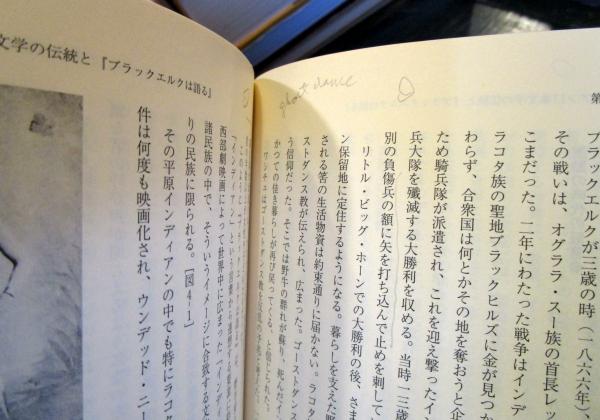 第
ghost dance
ブラックエルクが三歳の時（一八六六年）、
その戦いは、オグララ・スー族の首長レッ
こまだった。二年にわたった戦争はインデ
ラコタ族の聖地ブラックヒルズに金が見つか
わらず、合衆国は何とかその地を奪おうと企
ため騎兵隊が派遣され、これを迎え撃ったイ
兵大隊を殲滅する大勝利を収める。当時一三歳
別の負傷兵の額に矢を打ち込んで止めを刺して
リトル・ビッグ・ホーンでの大勝利の後、さま
ン保留地に定住するようになる。暮らしを支えた野
される筈の生活物資は約束通りに届かない。ラコタ
ストダンス教が伝えられ、広まった。ゴーストダンス
う信仰だった。そこでは野牛の群れが蘇り、死んだイ
かつての佳き暮らしが再び戻ってくる、と信じられ
ワシチュはゴーストダンス教を反乱の予兆と考えた。
文学の伝統と『ブラックエルクは語る』
「インディアン」という
西部劇映画によって世界中に広まった〈インディ
諸民族の中で、そういうイメージに合致する文
りの民族に限られる。[図4-1]
その平原インディアンの中でも特にラコタ
件は何度も映画化され、ウンデッド・ニー